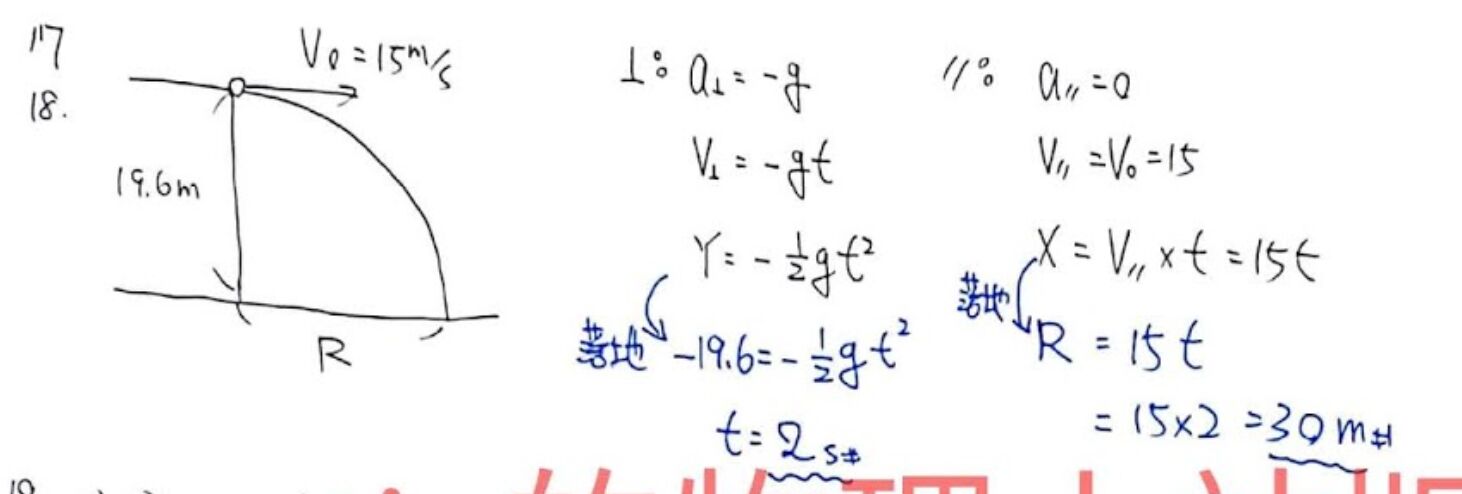 17
18.
V₀ = 15 m/s
19.6m
R
⊥: a⊥ = -g
V⊥ = -gt
Y = -½gt²
落地 -19.6 = -½gt²
t = 2 s#
//: a// = 0
V// = V₀ = 15
X = V// × t = 15t
落地 R = 15t
= 15×2 = 30 m#